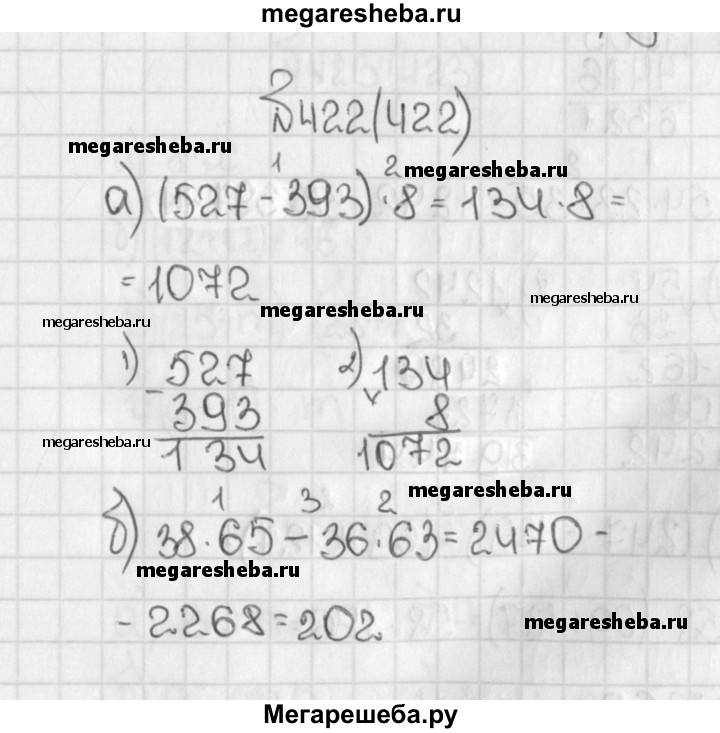 megaresheba.ru
№422(422)
megaresheba.ru
1 2 megaresheba.ru
а) (527-393)·8=134·8=
=1072 megaresheba.ru
megaresheba.ru megaresheba.ru
1) 527 2) 134
- 393 × 8
megaresheba.ru 134 1072
1 3 2 megaresheba.ru
б) 38·65-36·63=2470-
megaresheba.ru
-2268=202 megaresheba.ru
Мегарешеба.ру